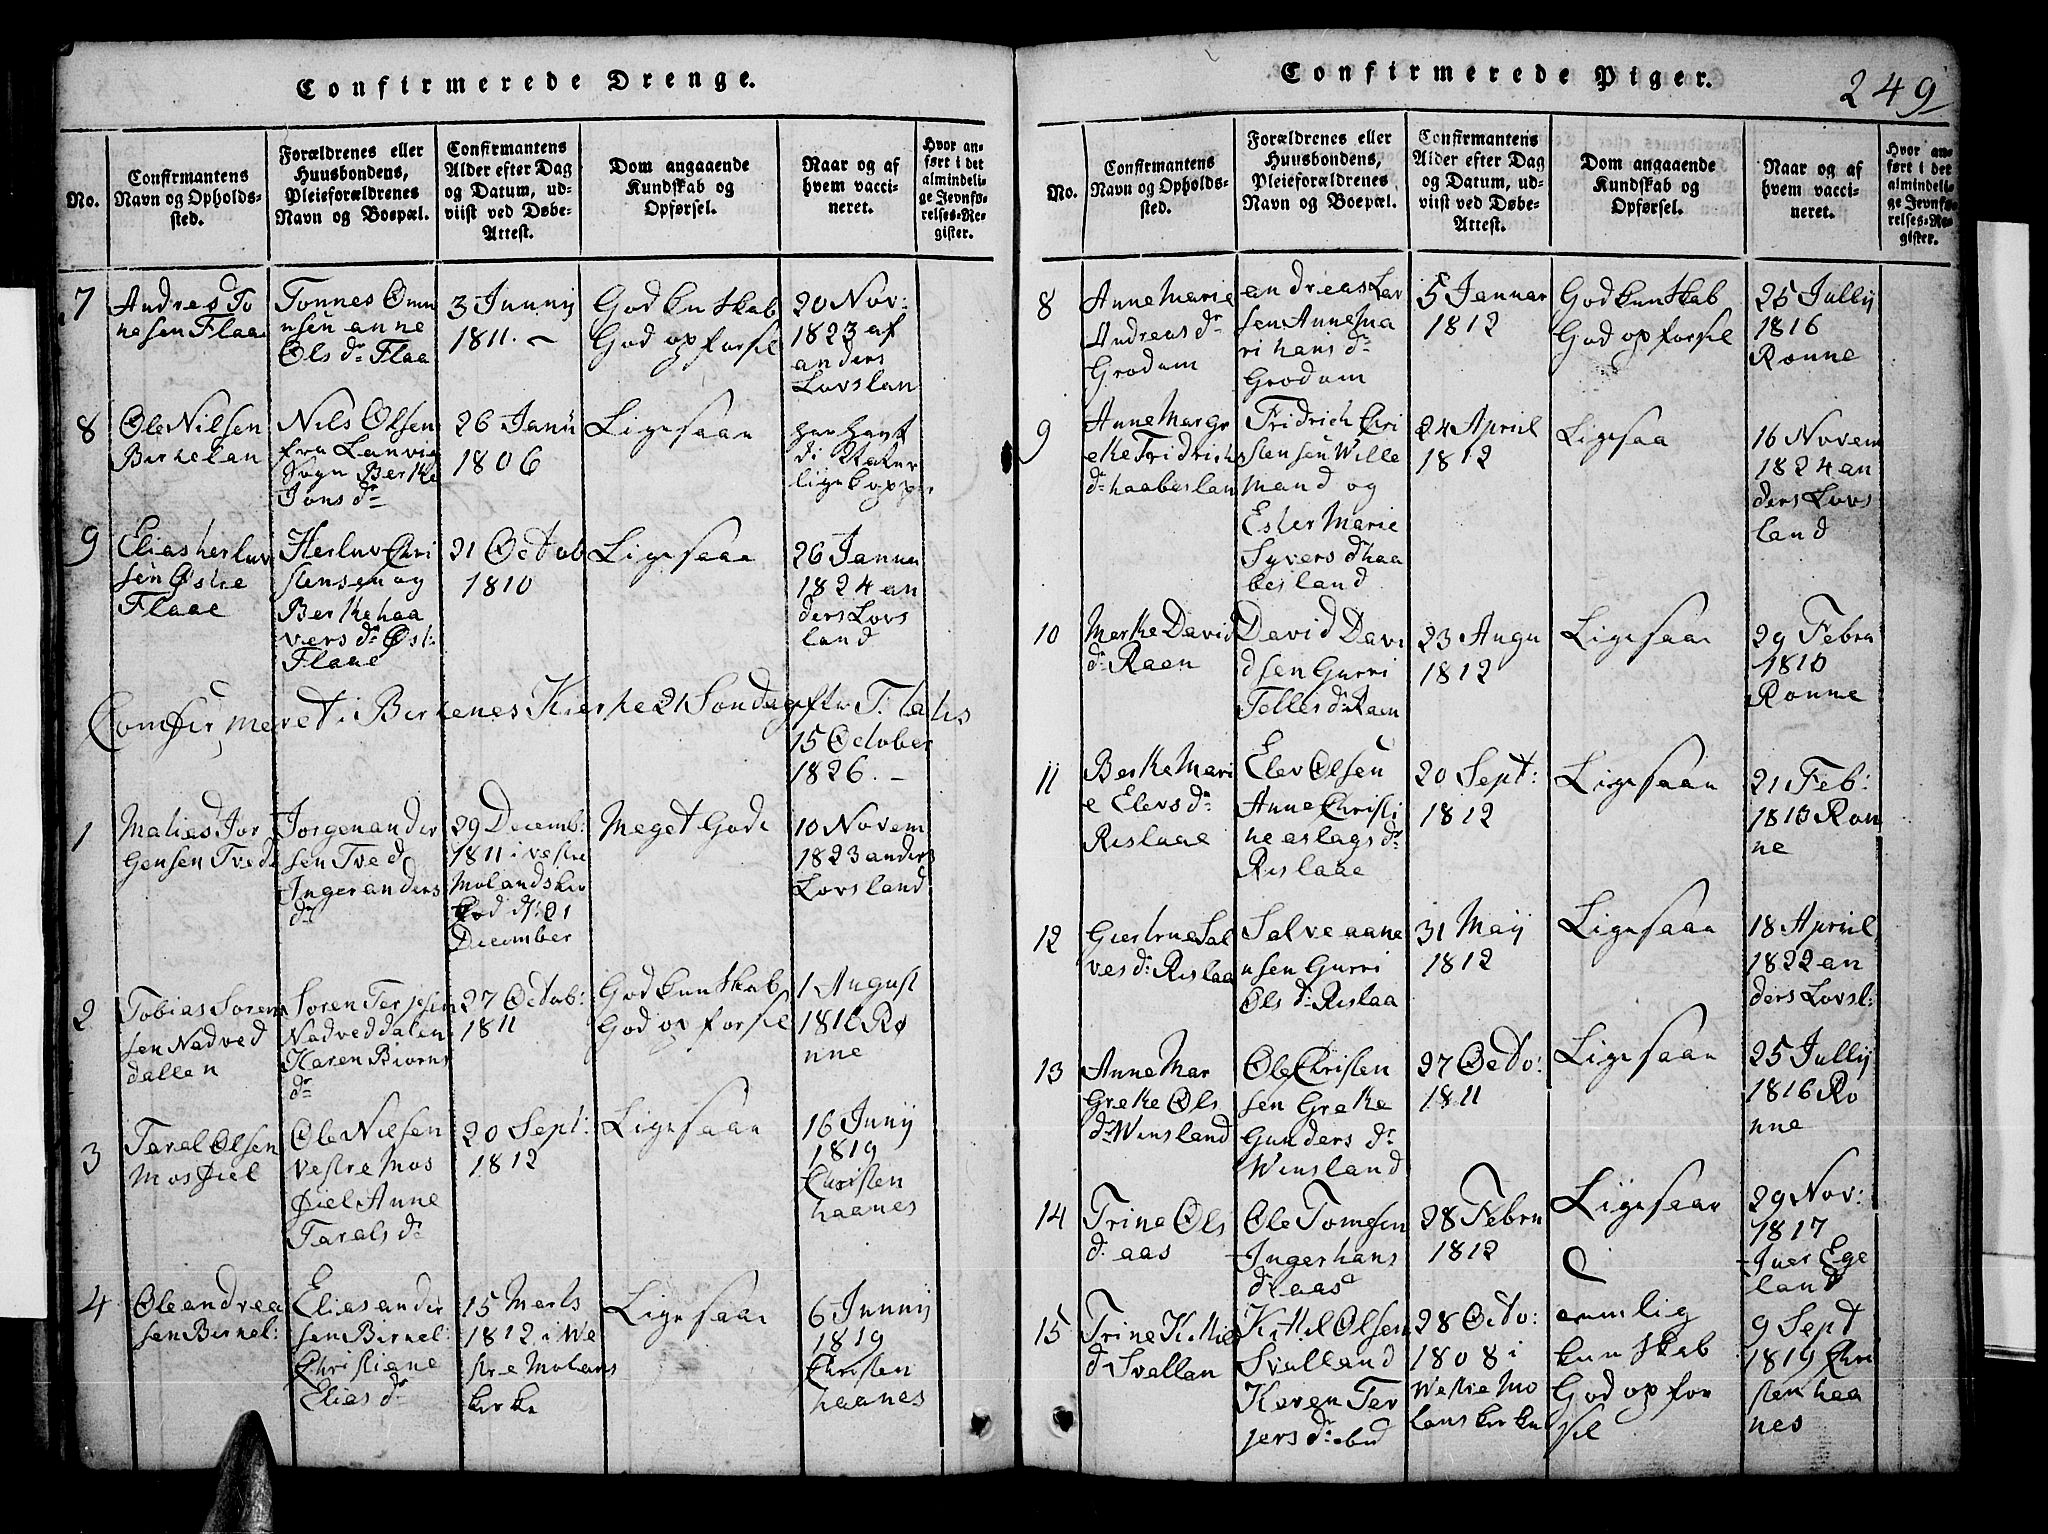 Confirmerede Drenge.
No.
Confirmantens
Navn og Opholds-
sted.
Forældrenes eller
Huusbondens,
Pleieforældrenes
Navn og Boepæl.
Confirmantens
Alder efter Dag
og Datum, ud-
viist ved Døbe-
Attest.
Dom angaaende
Kundskab og
Opførsel.
Naar og af
hvem vacci-
neret.
Hvor an-
ført i det
almindeli-
ge Jevnfø-
relses-Re-
gister.
7
Andres To
nesen Flaae
Tonnes Omu
nsen anne
Ols dr Flaa
3 Junnij
1811. -
God kunskab
God opforsel
20 Nov:
1823 af
anders
Lovslan
8
Ole Nilsen
Berkelan
Nils Olsen
fra Lanvig
Sogn Berthe
Jons dr
26 Janu
1806
Ligesaa
har havt
di
9
Elias herluv
sen Østre
Flaae
Herluv Chri
stensen og
Berthe haa
vers dr Øst:
Flaae
21 Octob
1810
Ligesaa
26 Janu
1824 an
ders Lovs
land
Confirmeret i Berkenes Kierke 21 Søndag efter
15 October
1826. -
1
Matias Jor
Gensen Tvede
Jorgen ander
sen Tved
Inger anders
dr
29 Decemb:
1811 i vestre
Molands
21
December
Meget Gode
10 Novem
1823 anders
Lovsland
2
Tobias Soren
sen Nadved
dallen
Soren Terjesen
Nadveddalen
Karen Biorns
dr
27 Octob:
1811
God kunskab
God opforsel
1 August
1816 Ro
nne
3
Taral Olsen
Mosfiel
Ole Nilsen
vestre Mos
fiel Anne
Tarals dr
20 Sept:
1812
Ligesaa
16 Junij
1819
Christen
haanes
4
Ole andrea
sen Birkel:
Elias ander
sen Birkel:
Christiane
Elias dr
15 Marts
1812 i We
stre Molans
kirke
Ligesaa
6 Junnij
1819
Christen
haanes
Confirmerede Piger.
249
No.
Confirmantens
Navn og Opholds-
sted.
Forældrenes eller
Huusbondens,
Pleieforældrenes
Navn og Boepæl.
Confirmantens
Alder efter Dag
og Datum, ud-
viist ved Døbe-
Attest.
Dom angaaende
Kundskab og
Opførsel.
Naar og af
hvem vacci-
neret.
Hvor an-
ført i det
almindeli-
ge Jevnfø-
relses-Re-
gister.
8
Anne Marie
Andreas dr
Grodum
andreas Lar
sen Anne ma
ri hans dr
Grodum
5 Januar
1812
God kunskab
God opforsel
25 Jullij
1816
Ronne
9
Anne Margr
ete Fridrich
dr haabeslan
Fridrich Chri
stensen Wille
mand og
Ester Marie
Syvers dr haa
besland
24 Apriil
1812
Ligesaa
16 Novem
1824 an
ders Lovs
land
10
Merthe David
dr Raen
David Davi
dsen Gurri
Telles dr Raen
23 Augu
1812
Ligesaa
29 Febru
Ronne
11
Berthe Mari
e Elevs dr
Rislaae
Elev Olsen
Anne Christi
ne aslags dr
Rislaae
20 Sept:
1812
Ligesaa
21 Feb:
Ron
ne
12
Giertrue Sal
ves dr Rislaa
Salve aane
nsen Gurri
Ols dr Rislaa
31 Maij
1812
Ligesaa
18 Apriil
1822 an
ders Lovsl:
13
Anne Mar
Grethe Ols
dr Winsland
Ole Christen
sen Grethe
Gunders dr
Winsland
27 Octo:
1811
Ligesaa
25 Jullij
1816 Ro
nne
14
Trine Ols
dr aas
Ole Tomesen
Inger hans
dr aas
28 Febru
1812
Ligesaa
29 Nov:
1817
Iver Ege
land
15
Trine Kittels
dr Svellan
Kittel Olsen
Svalland
Karen Ter
jers dr ibid
28 Octo:
1808 i
Westre Mo
lans kirke
kunskab
God opfor
sel
9 Sept
1819 Chri
sten haa
nes